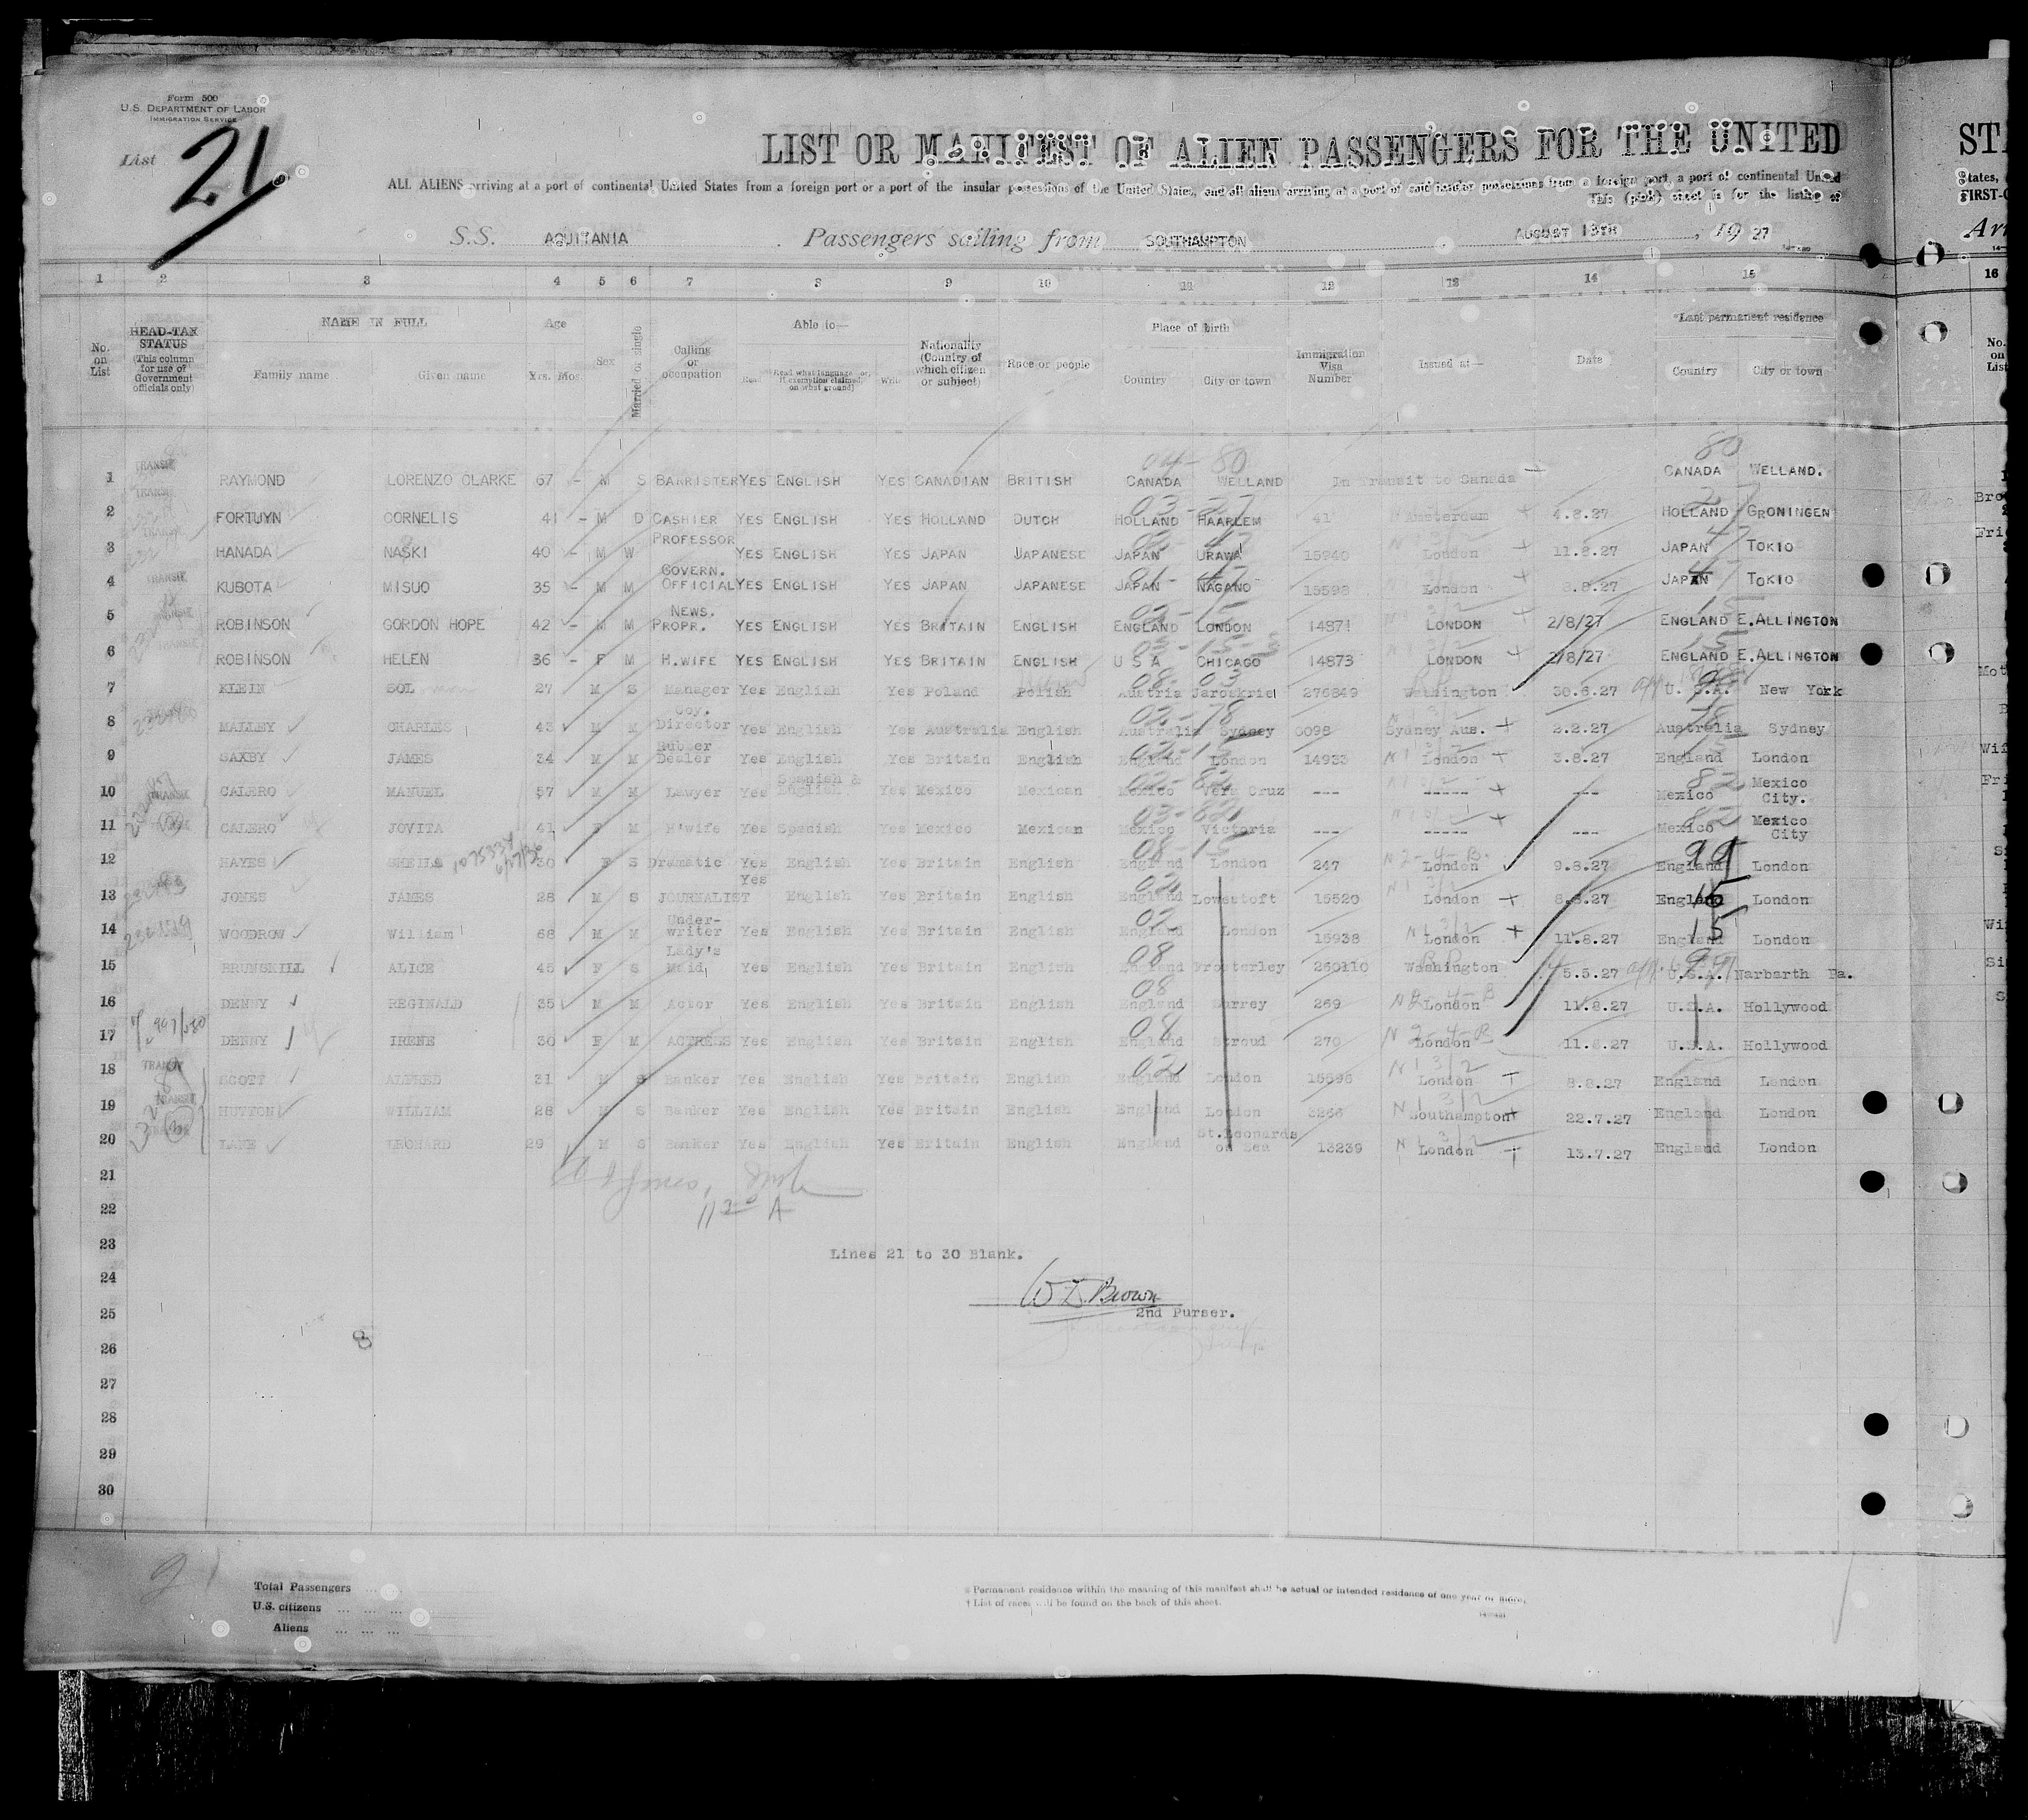 Form 500
U.S. DEPARTMENT OF LABOR
IMMIGRATION SERVICE
List 21
LIST OR MANIFEST OF ALIEN PASSENGERS FOR THE UNITED
ALL ALIENS arriving at a port of continental United States from a foreign port or a port of the insular possessions of the United States, and all aliens arriving at a port of said insular possessions from a foreign port, a port of continental United
This (pink) sheet is for the listing of
S.S. AQUITANIA Passengers sailing from SOUTHAMPTON, AUGUST 13TH, 1927
1 2 3 4 5 6 7 8 9 10 11 12 13 14 15
No. on List
HEAD-TAX STATUS (This column for use of Government officials only)
NAME IN FULL Family name Given name
Age Yrs. Mos.
Sex
Married or single
Calling or occupation
Able to— Read Read what language or, if exemption claimed, on what ground Write
Nationality (Country of which citizen or subject)
Race or people
Place of birth Country City or town
Immigration Visa Number
Issued at—
Date
*Last permanent residence Country City or town
1 TRANSIT RAYMOND LORENZO CLARKE 67 - M S BARRISTER YES ENGLISH YES CANADIAN BRITISH CANADA WELLAND In Transit to Canada CANADA WELLAND.
2 TRANSIT FORTUYN CORNELIS 41 - M D CASHIER YES ENGLISH YES HOLLAND DUTCH HOLLAND HAARLEM 41 Amsterdam 4.8.27 HOLLAND GRONINGEN
3 TRANSIT HANADA NASKI 40 - M W PROFESSOR YES ENGLISH YES JAPAN JAPANESE JAPAN URAWA 15940 London 11.8.27 JAPAN TOKIO
4 TRANSIT KUBOTA MISUO 35 - M M GOVERN. OFFICIAL YES ENGLISH YES JAPAN JAPANESE JAPAN NAGANO 15598 London 8.8.27 JAPAN TOKIO
5 ROBINSON GORDON HOPE 42 - M M NEWS. PROPR. YES ENGLISH YES BRITAIN ENGLISH ENGLAND LONDON 14871 LONDON 2/8/27 ENGLAND E.ALLINGTON
6 ROBINSON HELEN 36 - F M H.WIFE YES ENGLISH YES BRITAIN ENGLISH U S A CHICAGO 14873 LONDON 2/8/27 ENGLAND E.ALLINGTON
7 KLEIN SOL 27 M S Manager Yes English Yes Poland Polish Austria Jaroskriel 276849 Washington 30.6.27 U. S.A. New York
8 MALLEY CHARLES 43 M M Coy. Director Yes English Yes Australia English Australia Sydney 0098 Sydney Aus. 2.2.27 Australia Sydney
9 SAXBY JAMES 34 M M Rubber Dealer Yes English Yes Britain English England London 14933 London 3.8.27 England London
10 TRANSIT CALERO MANUEL 57 M M Lawyer Yes Spanish & English Yes Mexico Mexican Mexico Vera Cruz --- ----- --- Mexico Mexico City.
11 CALERO JOVITA 41 F M H'wife Yes Spanish Yes Mexico Mexican Mexico Victoria --- ----- --- Mexico Mexico City
12 HAYES SHEILA 30 F S Dramatic Yes English Yes Britain English England London 247 London 9.8.27 England London
13 JONES JAMES 28 M S JOURNALIST Yes English Yes Britain English England Lowestoft 15520 London 8.8.27 England London
14 WOODROW William 68 M M Under-writer Yes English Yes Britain English England London 15938 London 11.8.27 England London
15 BRUNSKILL ALICE 45 F S Lady's Maid Yes English Yes Britain English England Frosterley 260110 Washington 5.5.27 U.S.A. Narbarth Pa.
16 DENNY REGINALD 35 M M Actor Yes English Yes Britain English England Surrey 269 London 11.8.27 U.S.A. Hollywood
17 DENNY IRENE 30 F M ACTRESS Yes English Yes Britain English England Stroud 270 London 11.8.27 U.S.A. Hollywood
18 TRANSIT SCOTT ALFRED 31 M S Banker Yes English Yes Britain English England London 15596 London 8.8.27 England London
19 TRANSIT HUTTON WILLIAM 28 M S Banker Yes English Yes Britain English England London 3266 Southampton 22.7.27 England London
20 LANE LEONARD 29 M S Banker Yes English Yes Britain English England St.Leonards on Sea 13239 London 13.7.27 England London
21
22
23 Lines 21 to 30 Blank.
24 W Z Brown
25 2nd Purser.
26
27
28
29
30
Total Passengers
U.S. citizens
Aliens
* Permanent residence within the meaning of this manifest shall be actual or intended residence of one year or more.
† List of races will be found on the back of this sheet.